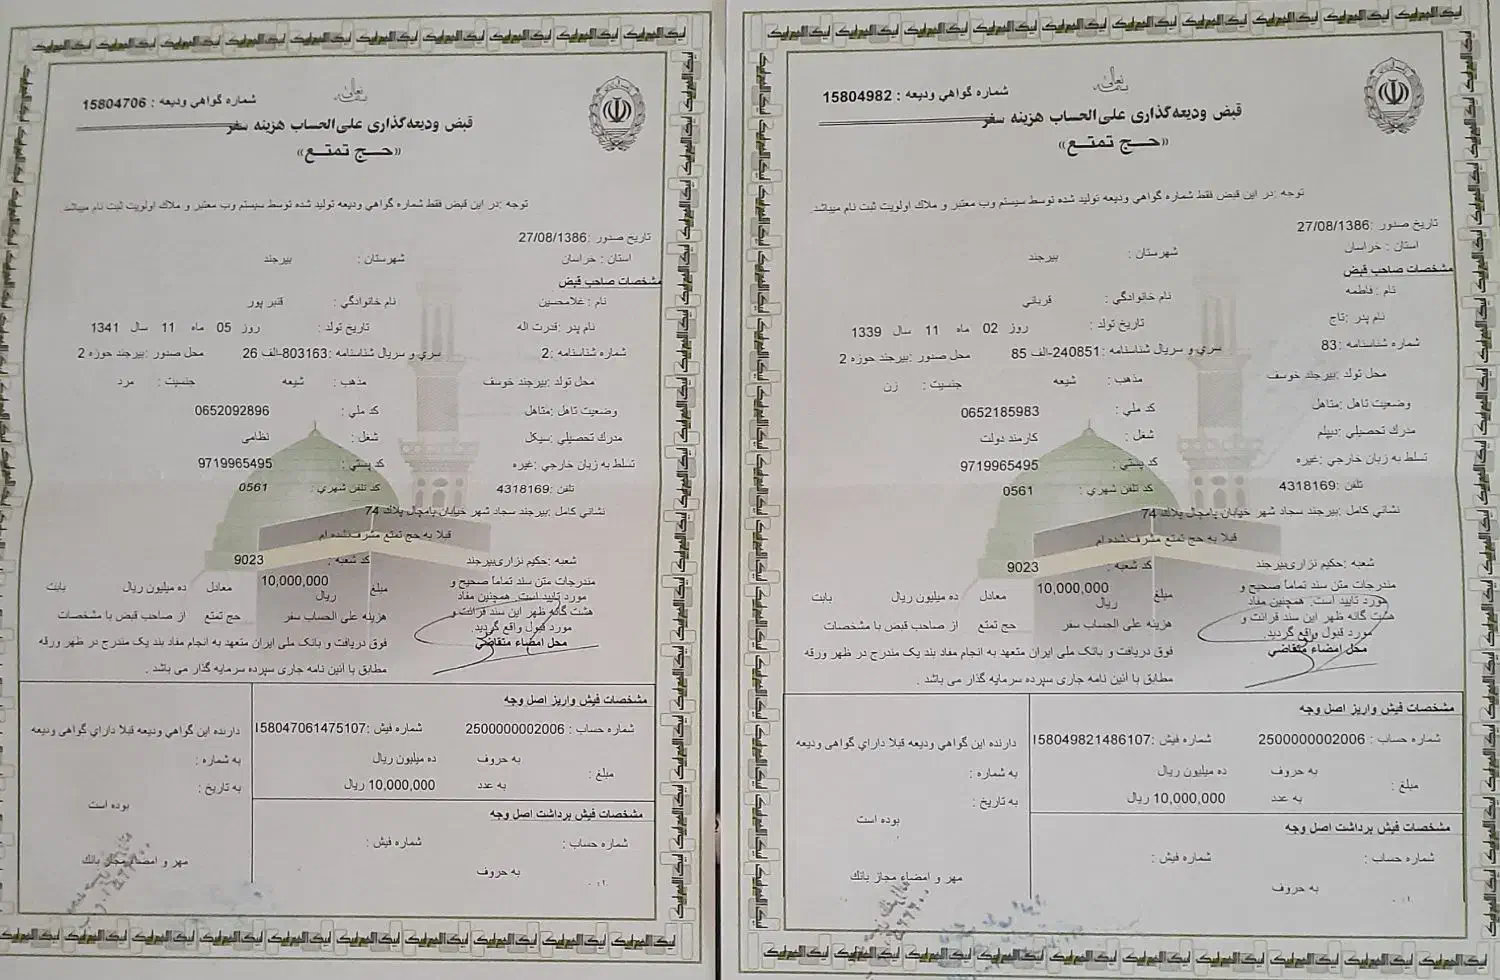 تعالی
شماره گواهي وديعه : 15804982
قبض وديعه‌گذاری علی‌الحساب هزينه سفر
«حـــج تمتـــع»
توجه :در اين قبض فقط شماره گواهي وديعه توليد شده توسط سيستم وب معتبر و ملاك اولويت ثبت نام ميباشد.
تاريخ صدور :27/08/1386
استان : خراسان شهرستان : بيرجند
مشخصات صاحب قبض
نام : فاطمه نام خانوادگي : قرباني
نام پدر :تاج تاريخ تولد : روز 02 ماه 11 سال 1339
شماره شناسنامه :83 سري و سريال شناسنامه :240851-الف 85 محل صدور :بيرجند حوزه 2
محل تولد :بيرجند خوسف مذهب : شيعه جنسيت : زن
وضعيت تاهل :متاهل كد ملي : 0652185983
مدرك تحصيلي :ديپلم شغل : كارمند دولت
تسلط به زبان خارجي :غيره كد پستي : 9719965495
تلفن :4318169 كد تلفن شهري : 0561
نشاني كامل :بيرجند سجاد شهر خيابان پامچال پلاك 74
قبلا به حج تمتع مشرف‌نشده ام
شعبه :حكيم نزاری‌بيرجند كد شعبه : 9023
مندرجات متن سند تماماً صحيح و
مورد تاييد است. همچنين مفاد
هشت گانه ظهر اين سند قرائت و
مورد قبول واقع گرديد.
محل امضاء متقاضي
مبلغ 10,000,000 ريال معادل ده ميليون ريال بابت
هزينه علی الحساب سفر حج تمتع از صاحب قبض با مشخصات
فوق دريافت و بانک ملی ايران متعهد به انجام مفاد بند يک مندرج در ظهر ورقه
مطابق با آئين نامه جاری سپرده سرمايه گذار می باشد .
مشخصات فيش واريز اصل وجه
شماره حساب : 2500000002006 شماره فيش :158049821486107
مبلغ : به حروف ده ميليون ريال
به عدد 10,000,000 ريال
مشخصات فيش برداشت اصل وجه
شماره حساب : شماره فيش :
به حروف
دارنده اين گواهي وديعه قبلا داراي گواهی وديعه
به شماره :
به تاريخ :
بوده است
مهر و امضاء مجاز بانك
تعالی
شماره گواهي وديعه : 15804706
قبض وديعه‌گذاری علی‌الحساب هزينه سفر
«حـــج تمتـــع»
توجه :در اين قبض فقط شماره گواهي وديعه توليد شده توسط سيستم وب معتبر و ملاك اولويت ثبت نام ميباشد.
تاريخ صدور :27/08/1386
استان : خراسان شهرستان : بيرجند
مشخصات صاحب قبض
نام : غلامحسين نام خانوادگي : قنبر پور
نام پدر :قدرت اله تاريخ تولد : روز 05 ماه 11 سال 1341
شماره شناسنامه :2 سري و سريال شناسنامه :803163-الف 26 محل صدور :بيرجند حوزه 2
محل تولد :بيرجند خوسف مذهب : شيعه جنسيت : مرد
وضعيت تاهل :متاهل كد ملي : 0652092896
مدرك تحصيلي :سيكل شغل : نظامی
تسلط به زبان خارجي :غيره كد پستي : 9719965495
تلفن :4318169 كد تلفن شهري : 0561
نشاني كامل :بيرجند سجاد شهر خيابان پامچال پلاك 74
قبلا به حج تمتع مشرف‌نشده ام
شعبه :حكيم نزاری‌بيرجند كد شعبه : 9023
مندرجات متن سند تماماً صحيح و
مورد تاييد است. همچنين مفاد
هشت گانه ظهر اين سند قرائت و
مورد قبول واقع گرديد.
محل امضاء متقاضي
مبلغ 10,000,000 ريال معادل ده ميليون ريال بابت
هزينه علی الحساب سفر حج تمتع از صاحب قبض با مشخصات
فوق دريافت و بانک ملی ايران متعهد به انجام مفاد بند يک مندرج در ظهر ورقه
مطابق با آئين نامه جاری سپرده سرمايه گذار می باشد .
مشخصات فيش واريز اصل وجه
شماره حساب : 2500000002006 شماره فيش :158047061475107
مبلغ : به حروف ده ميليون ريال
به عدد 10,000,000 ريال
مشخصات فيش برداشت اصل وجه
شماره حساب : شماره فيش :
به حروف
دارنده اين گواهي وديعه قبلا داراي گواهی وديعه
به شماره :
به تاريخ :
بوده است
مهر و امضاء مجاز بانك